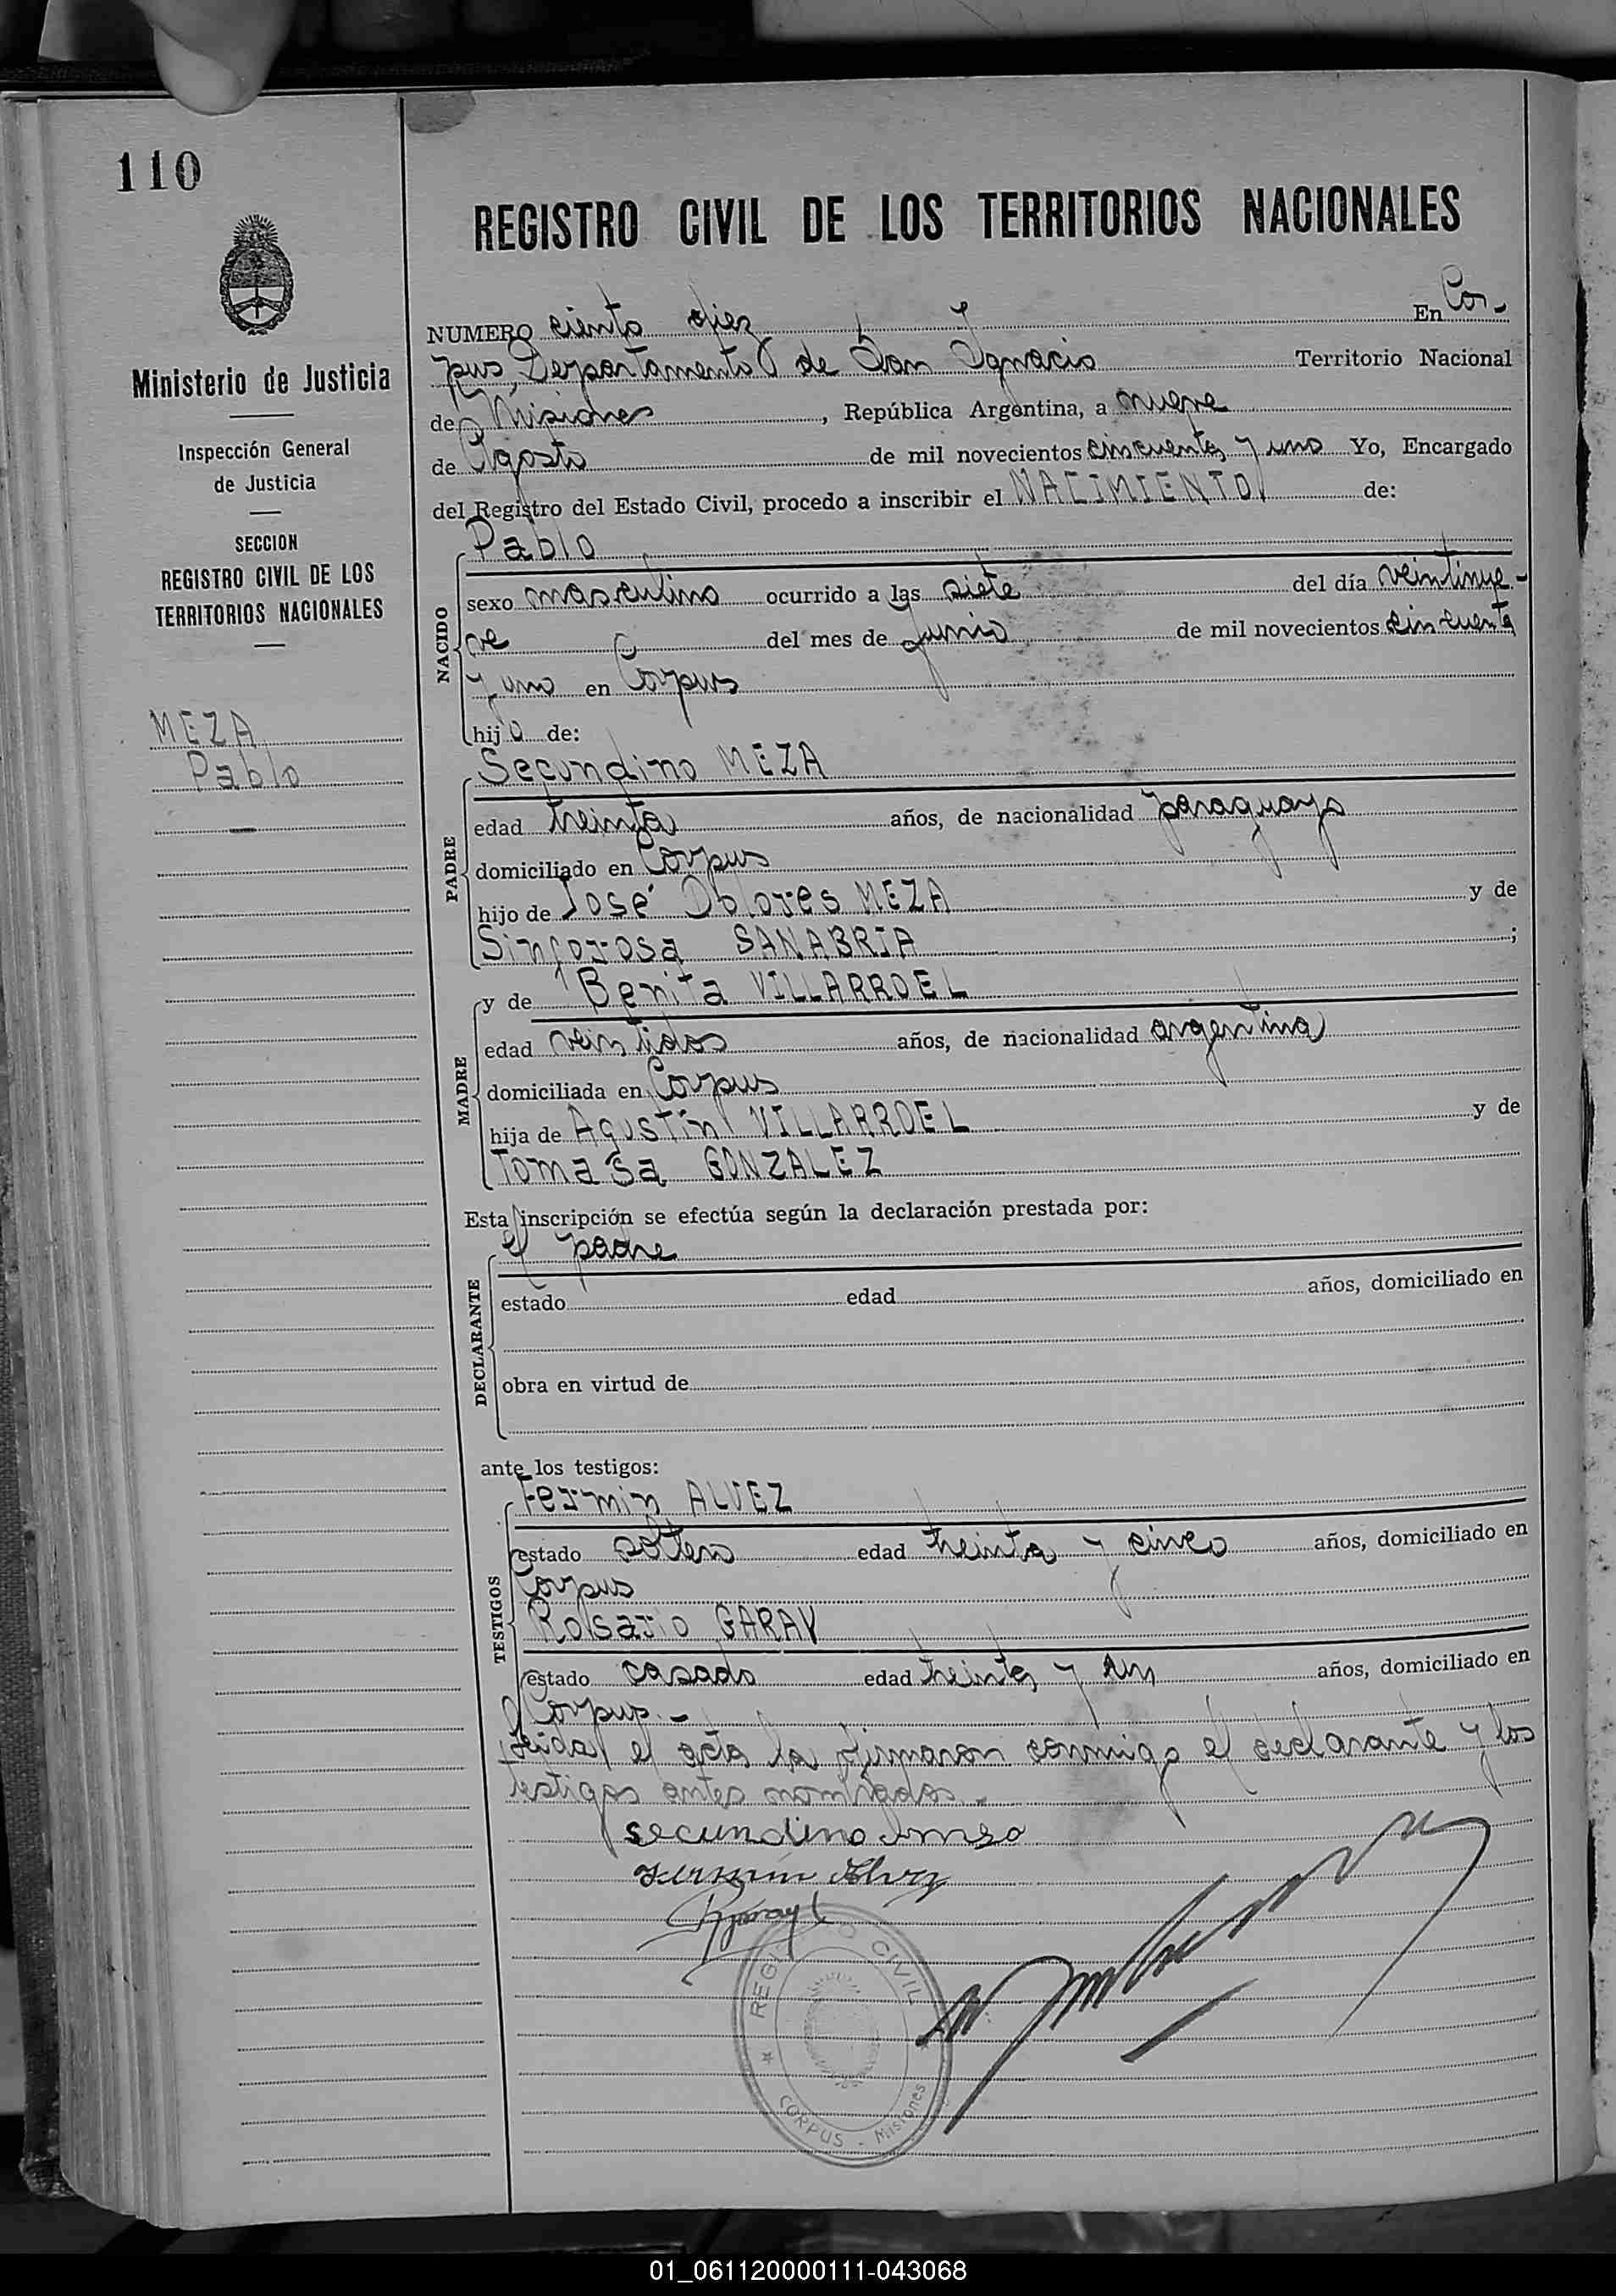 110
REGISTRO CIVIL DE LOS TERRITORIOS NACIONALES
Ministerio de Justicia
Inspección General
de Justicia
SECCION
REGISTRO CIVIL DE LOS
TERRITORIOS NACIONALES
MEZA
Pablo
NUMERO ciento diez En Cor-
pus, Departamento de San Ignacio Territorio Nacional
de Misiones, República Argentina, a nueve
de Agosto de mil novecientos cincuenta y uno Yo, Encargado
del Registro del Estado Civil, procedo a inscribir el NACIMIENTO de:
NACIDO
Pablo
sexo masculino ocurrido a las siete del día veintinue-
ve del mes de junio de mil novecientos cincuenta
y uno en Corpus
hijo de:
PADRE
Secundino MEZA
edad treinta años, de nacionalidad paraguaya
domiciliado en Corpus
hijo de José Dolores MEZA y de
Sinforosa SANABRIA;
MADRE
y de Benita VILLARROEL
edad veintidos años, de nacionalidad argentina
domiciliada en Corpus
hija de Agustín VILLARROEL y de
Tomasa GONZALEZ
Esta inscripción se efectúa según la declaración prestada por:
DECLARANTE
el padre
estado edad años, domiciliado en
obra en virtud de
ante los testigos:
TESTIGOS
Fermin ALVEZ
estado soltero edad treinta y cinco años, domiciliado en
Corpus
Rosario GARAY
estado casado edad treinta y años, domiciliado en
Corpus.-
Leida el acta la firmaron conmigo el declarante y los
testigos antes nombrados.-
secundino meza
Fermin Alvez
REGISTRO CIVIL
CORPUS - Misiones
01_061120000111-043068